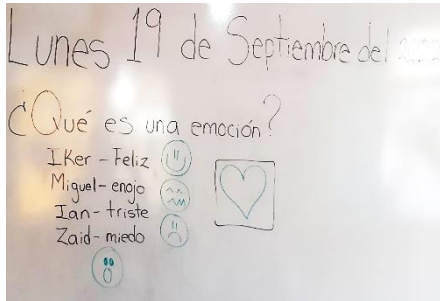 Lunes 19 de Septiembre del
¿Qué es una emoción?
IKer - Feliz
Miguel - enojo
Ian - triste
Zaid - miedo